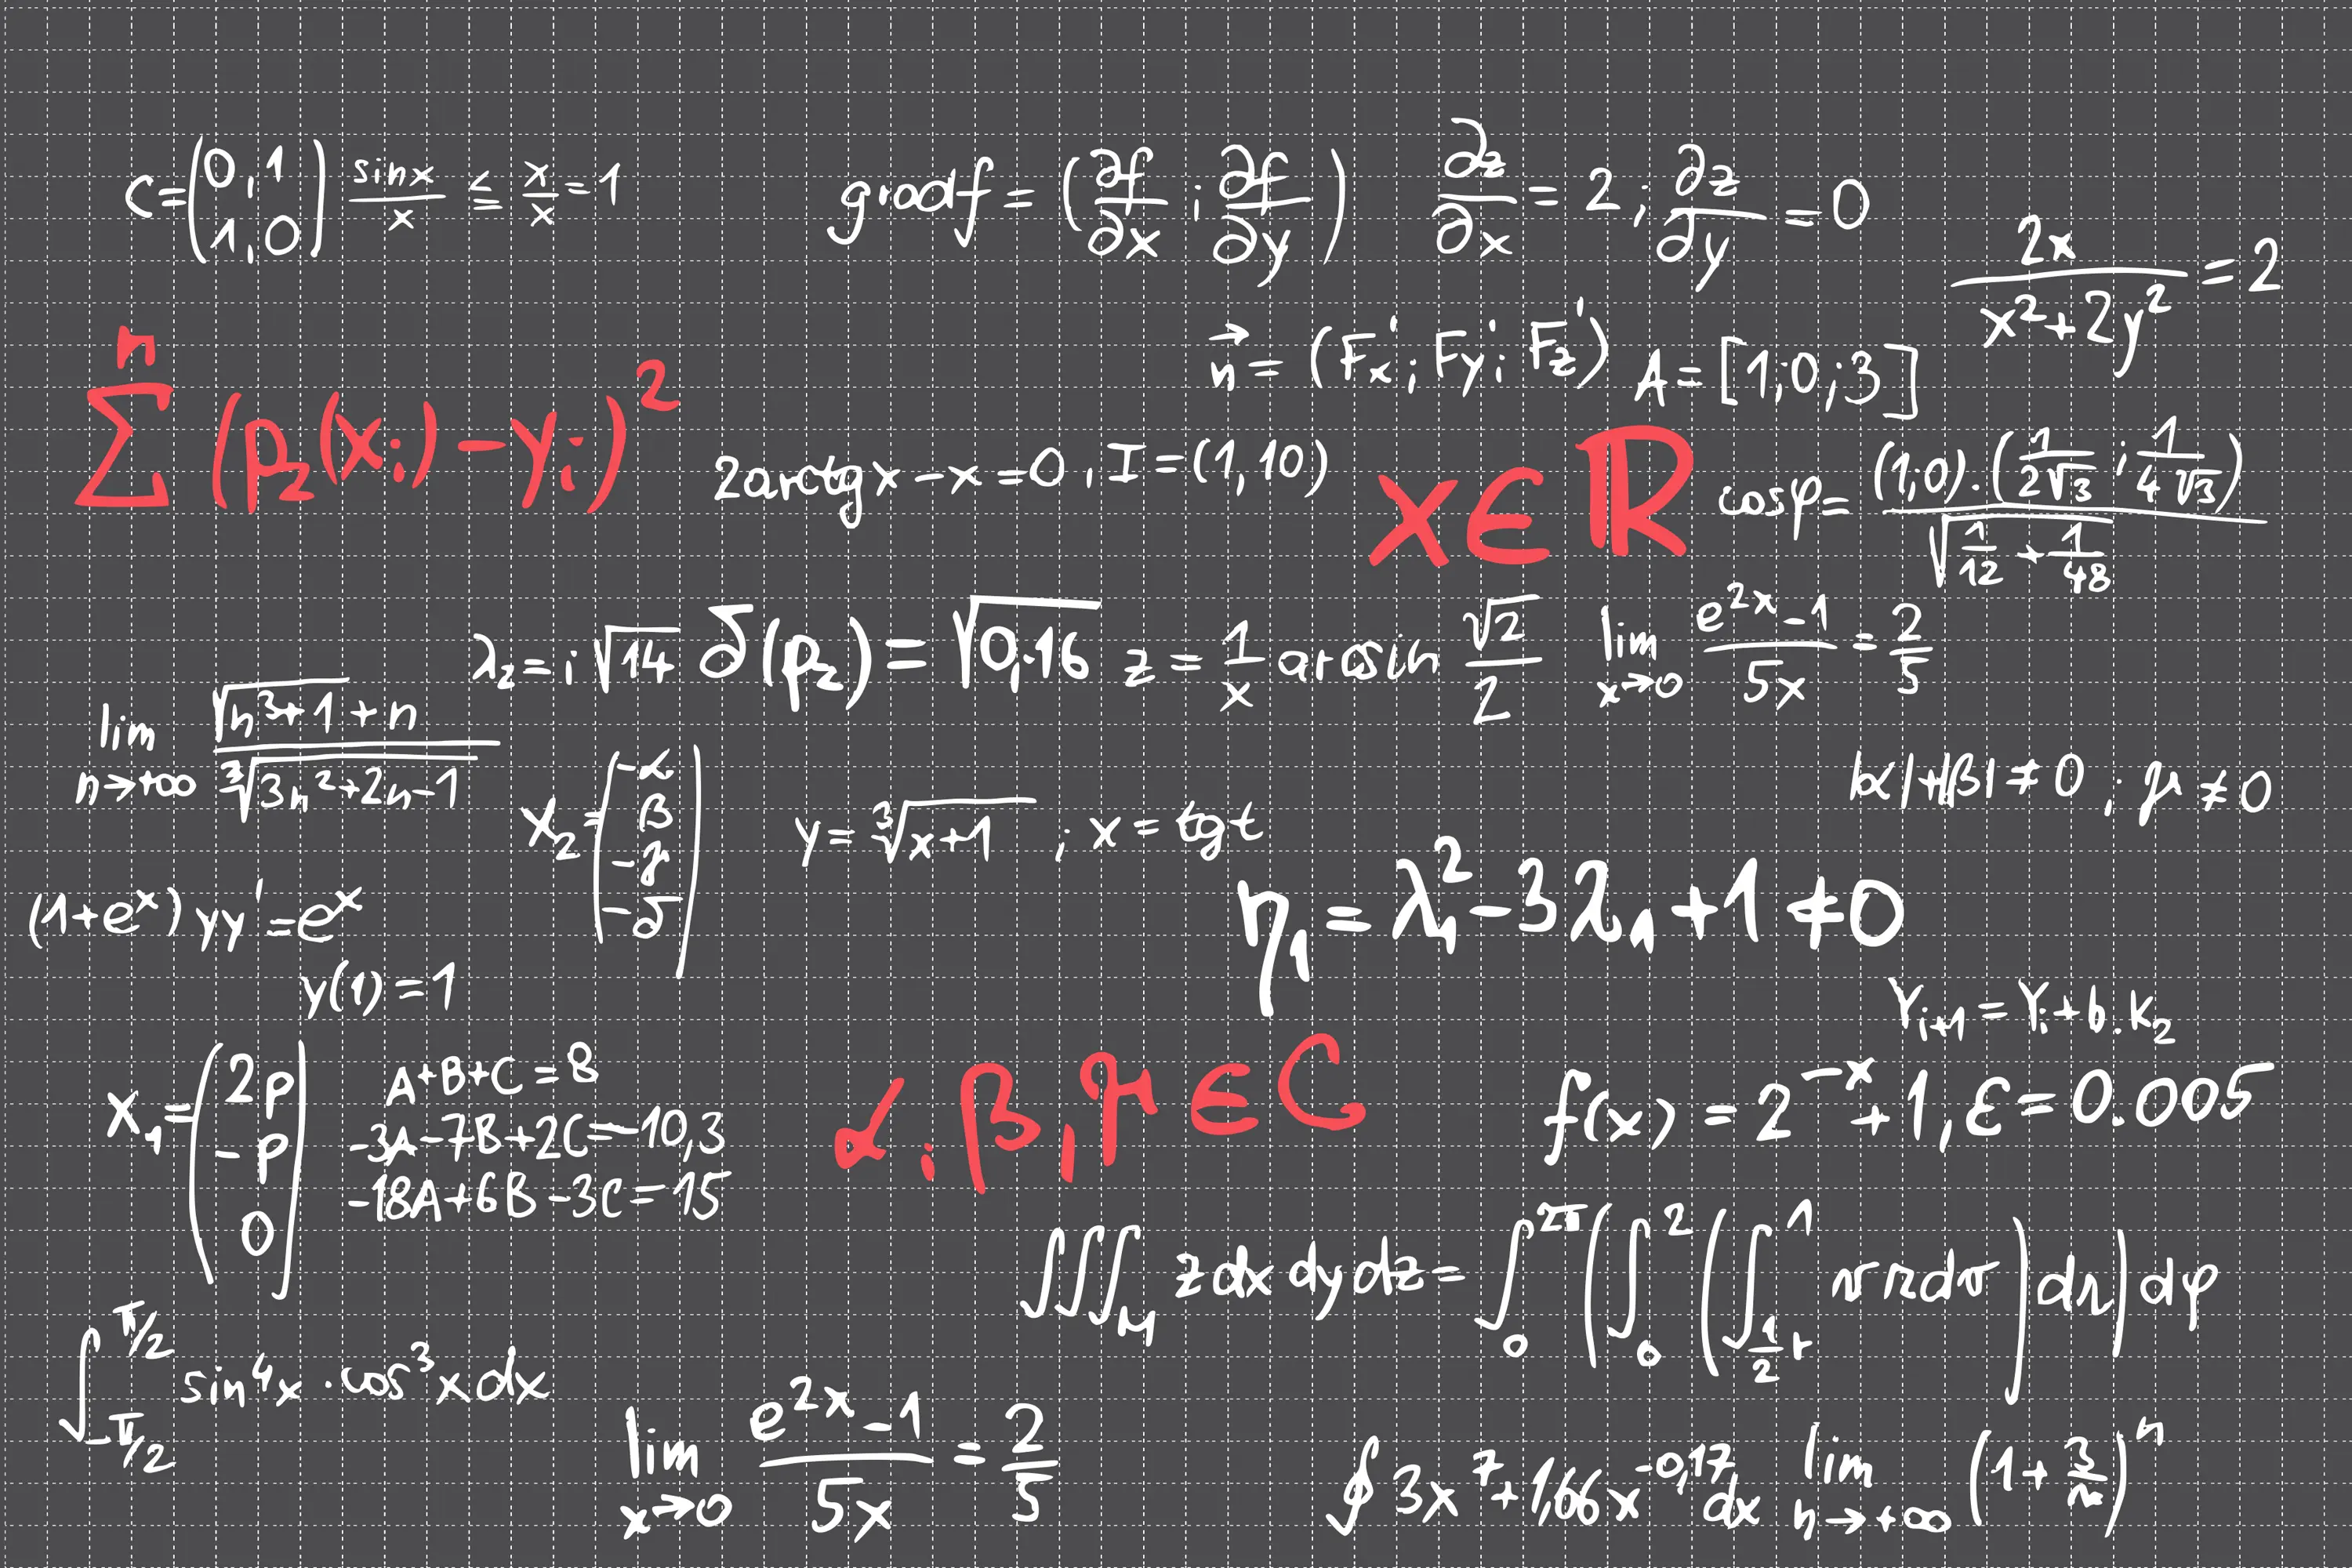 C=(0,1 1,0) sinx/x ≤ x/x=1
gradf = (∂f/∂x ; ∂f/∂y)
∂z/∂x = 2; ∂z/∂y = 0
2x/(x²+2y²) = 2
n⃗ = (Fx'; Fy'; Fz')
A=[1;0;3]
n∑ (p₂(xᵢ)-yᵢ)²
2arctgx-x=0, I=(1,10)
x∈ℝ
cosφ= (1;0).(1/2√3 ; 1/4√3) / √(1/12 + 1/48)
λ₂=i√14
δ(p₂) = √0,16
z = 1/x arcsin √2/2
lim x→0 (e^2x-1)/5x = 2/5
lim n→+∞ (√(n³+1)+n)/∛(3n²+2n-1)
X₂=(-α β -γ -δ)
y=∛(x+1) ; x=tgt
|α|+|β|≠0 ; γ≠0
η₁ = λ₁²-3λ₁+1≠0
(1+e^x)yy'=e^x
y(1)=1
Y_{i+1} = Yᵢ+b.k₂
X₁=(2p -p 0)
A+B+C=8
-3A-7B+2C=-10,3
-18A+6B-3C=15
α,β,γ∈C
f(x) = 2^-x+1, ε=0.005
∭_M z dx dy dz = ∫₀^2π (∫₀² (∫_{½r}¹ v r dv) dr) dφ
∫_{-π/2}^{π/2} sin⁴x·cos³x dx
lim x→0 (e^2x-1)/5x = 2/5
∮ 3x⁷+1,66x^-0,17 dx
lim n→+∞ (1+3/n)ⁿ